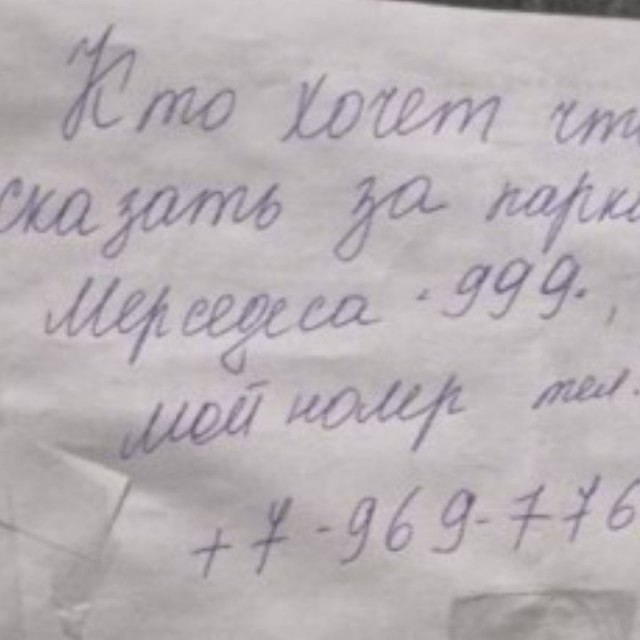 Кто хочет что
сказать за парк
Мерседеса "999",
мой номер тел.
+7-969-776